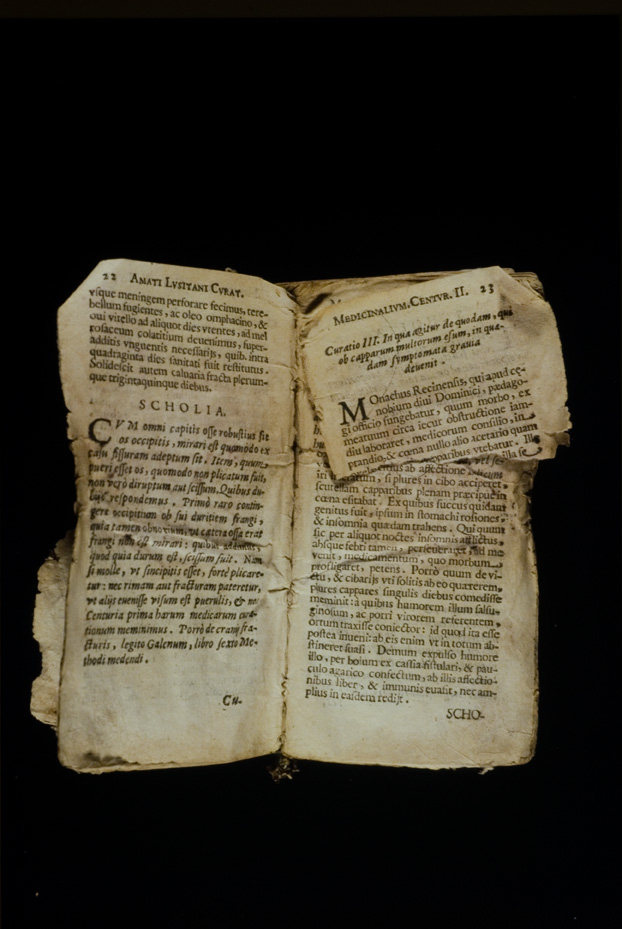 22 AMATI LVSITANI CVRAT.
vsque meningem perforare fecimus, tere-
bellum fugientes, ac oleo omphacino, &
oui vitello ad aliquot dies vtentes, ad mel
rosaceum colatitium deuenimus, super-
additis vnguentis necessarijs, quib. intra
quadraginta dies sanitati fuit restitutus.
Solidescit autem caluaria fracta plerun-
que trigintaquinque diebus.
SCHOLIA.
CVM omni capitis osse robustius sit
os occipitis, mirari est quomodo ex
casu fissuram adeptum sit. Item, quum
pueri esset os, quomodo non plicatum fuit,
non verò diruptum aut scissum. Quibus du-
bijs respondemus. Primò raro contin-
gere occipitium ob sui duritiem frangi,
quia tamen obnoxium, vt cætera ossa erat
frangi non est mirari: quibus addimus,
quod quia durum est, scissum fuit. Nam
si molle, vt sincipitis esset, fortè plicare-
tur: nec rimam aut fracturam pateretur,
vt alijs euenisse visum est puerulis, & nos
Centuria prima harum medicarum cura-
tionum meminimus. Porrò de cranij fra-
cturis, legito Galenum, libro sexto Me-
thodi medendi.
CV-
MEDICINALIVM. CENTVR. II. 23
Curatio III. In qua agitur de quodam, qui
ob capparum multorum esum, in quæ-
dam symptomata grauia
deuenit.
MOnachus Recinensis, qui apud cę-
nobium diui Dominici, pædago-
gi officio fungebatur, quum morbo, ex
mearuum circa iecur obstructione iam-
diu laboraret, medicorum consilio, in
prandio, & cœna nullo alio acetario quam
capparibus vtebatur. Ille
ab affectione
si plures in cibo acciperet,
scutellam capparibus plenam præcipuè in
cœna esitabat. Ex quibus succus quidam
genitus fuit, ipsum in stomachi rosiones,
& insomnia quædam trahens. Qui quum
sic per aliquot noctes insomnis afflictus,
absque febri tamen, perseueraret, ad me
venit, medicamentum, quo morbum
profligaret, petens. Porrò quum de vi-
ctu, & cibarijs vti solitis ab eo quærerem,
plures cappares singulis diebus comedisse
meminit: à quibus humorem illum salsu-
ginosum, ac porri virorem referentem,
ortum traxisse coniector: id quod ita esse
postea inueni: ab eis enim vt in totum ab-
stineret suasi. Demum expulso humore
illo, per bolum ex cassia fistulari, & pau-
culo agarico confectum, ab illis affectio-
nibus liber, & immunis euasit, nec am-
plius in easdem redijt.
SCHO-